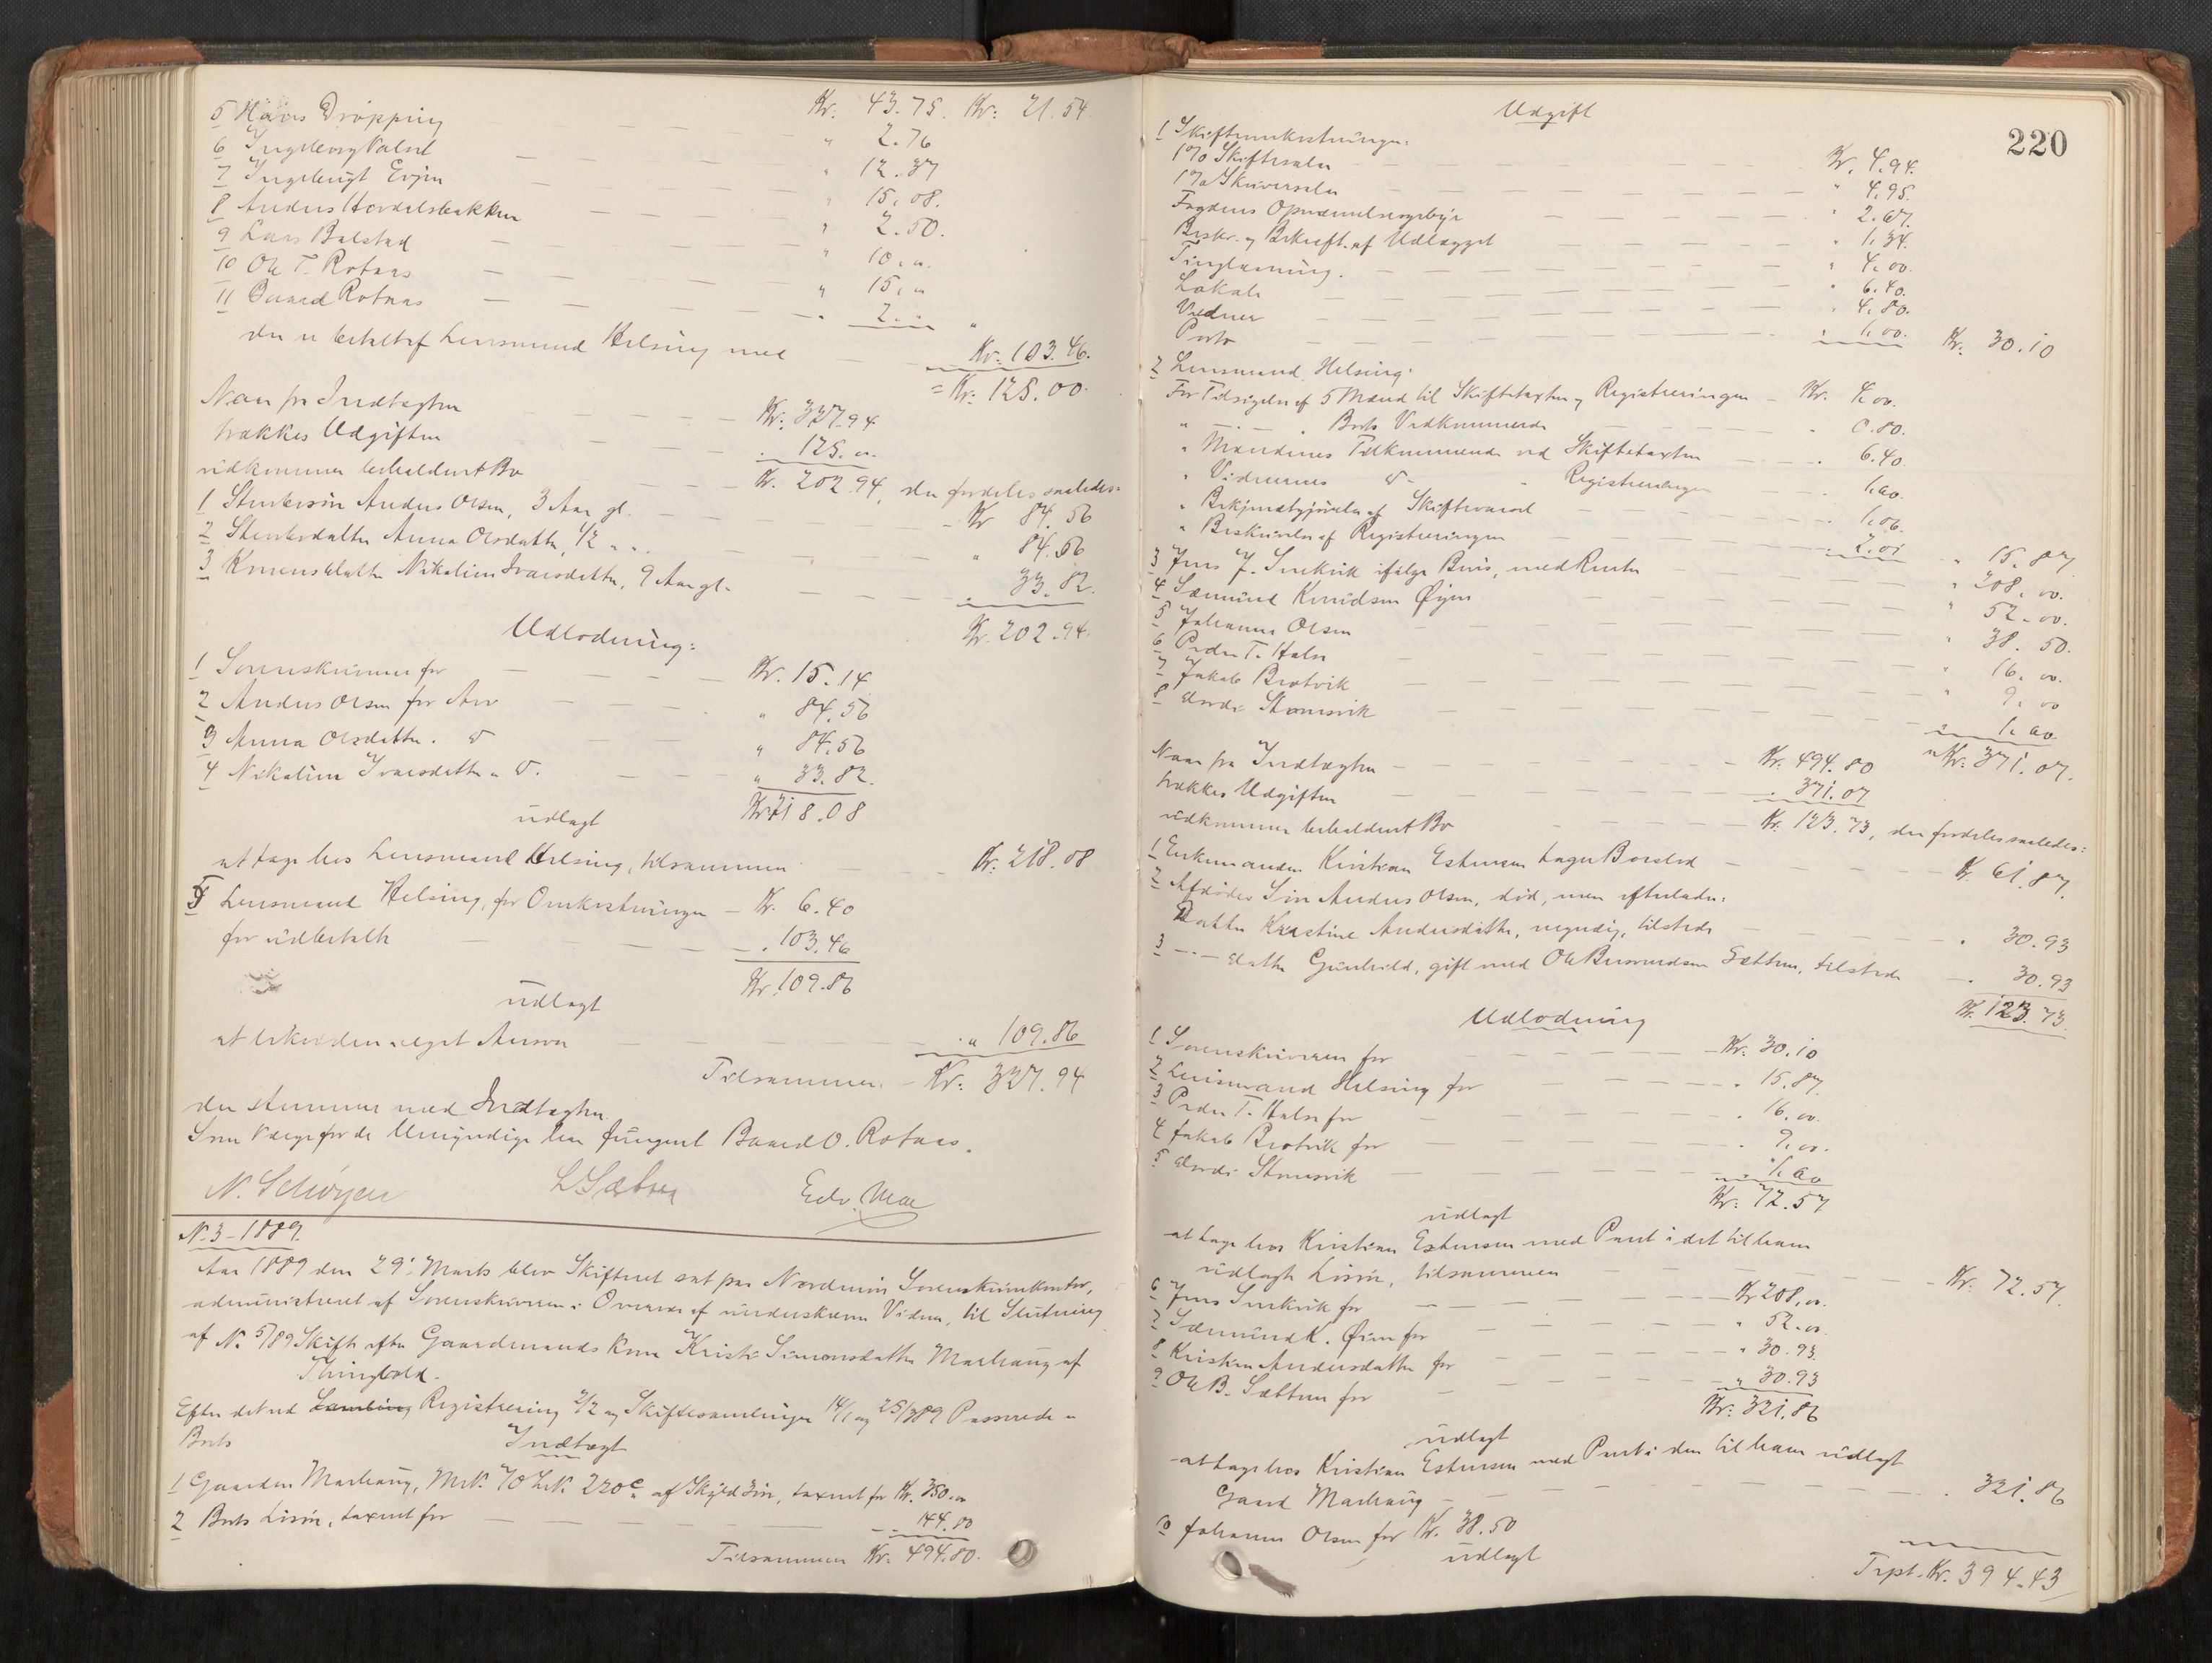 5 Hans Drøpping — — Kr: 43.75. Kr: 21.54
6 Ingeborg Valsel — — " 2.76
7 Ingebrigt Evjen — — " 12.37
8 Anders Hovdalsbakken — — " 15.08.
9 Lars Balstad — — " 2.50.
10 Ole T. Rotaas — — " 10."
11 Baard Rotaas — — " 15."
— " 2."
der er betalt af Lensmand Helsing med — Kr. 103.46.
= Kr. 125.00.
Naar fra Indtægten — — Kr: 327.94
trækkes Udgiften — — " 125.""
udkommer beholdent Bo — — Kr. 202.94, der fordeles saaledes:
1 Stenkersøn Anders Olsen, 3 Aar gl. — — Kr 84.56
2 Datter Anna Olsdatter, 1/2 " " — — " 84.56
3 Konens Datter Nikoline Ivarsdatter, 9 Aar gl. — — " 33.82.
Kr. 202.94.
Udlodning:
1 Sorenskriveren for — — Kr. 15.14
2 Anders Olsen for Arv — — " 84.56
3 Anna Olsdatter. do — — " 84.56
4 Nikoline Ivarsdatter " do. — — " 33.82.
Kr 218.08
udlagt
at tage hos Lensmand Helsing, tilsammen — Kr. 218.08
5 Lensmand Helsing, for Omkostninger — Kr. 6.40
for udbetalte — — " 103.46
Kr. 109.86
udlagt
at beholde i eget Ansvar — — " 109.86
Tilsammen — Kr: 327.94
der stemmer med Indtægten.
Som Værge for de Umyndige har fungeret Baard O. Rotaas.
N. Schøyen L. Sæther Edv. Moe
N. 3 - 1889.
Aar 1889 den 29' Marts blev Skifteret sat paa Nordmøre Sorenskriverkontor,
administreret af Sorenskriveren i Overvær af underskrevne Vidner, til Slutning
af No 5/89 Skifte efter Gaardmands Kone Kristi Simonsdatter Marhaug af
Thingvold.
Efter det ved Samling Registrering 2/2 og Skiftesamlinger 14/1 og 25/3 89 Passerede er
Boets Indtægt
1 Gaarden Marhaug, Mrk. 70 Lrk. 220c af Skyld 3 øre, taxeret for Kr. 350."
2 Boets Løsøre, taxeret for — — " 144.80
Tilsammen Kr. 494.80.
220
Udgift
1 Skifteomkostninger.
1% Skiftesalær — — Kr. 4.94.
1% Skriversalær — — " 4.95.
Fogdens Opnævnelsesgebyr — — " 2.67.
Beskr. og Bekræft. af Udlægget — — " 1.34.
Tinglæsning. — — " 4.00.
Lokale — — " 6.40.
Vidner — — " 4.80.
Porto — — " 1.00. Kr. 30.10
2 Lensmand Helsing:
For Tilsigelse af 5 Mænd til Skiftetaxten og Registreringen — Kr. 4.00.
" — " — Boets Vedkommende — " 0.80.
" Mændenes Tilkommende ved Skiftetaxten — " 6.40
" Vidnernes do — " Registreringen — " 1.60.
" Bekjendtgjørelse af Skiftevarsel — " 1.06.
" Beskrivelse af Registreringen — " 2.01 " 15.87
3 Jens J. Smevik ifølge Bevis, med Renter — " 208.00.
4 Sæmund Knudsen Øyen — " 52.00.
5 Johannes Olsen — " 38.50.
6 Peder T. Halse — " 16.00.
7 Jakob Brøtvik — " 9.00
8 Hovde Stomsvik — " 1.60
Kr. 371.07.
Naar fra Indtægten — — Kr. 494.80
trækkes Udgiften — — " 371.07
udkommer beholdent Bo — — Kr. 123.73, der fordeles saaledes:
1 Enkemanden Kristian Estensen tager Boeslod — Kr. 61.87.
2 Afdødes Søn Anders Olsen, død, men efterlader:
Datter Kristine Andersdatter, myndig, tilstede — " 30.93
3 — " — datter Gunhild, gift med Ole Sættem, tilstede " 30.93
Kr. 123.73.
Udlodning
1 Sorenskriveren for — — Kr. 30.10
2 Lensmand Helsing for — — " 15.87.
3 Peder T. Halse for — — " 16.00.
4 Jakob Brøtvik for — — " 9.00.
5 Hovde Stomsvik — — " 1.60
Kr. 72.57
udlagt
at tage hos Kristian Estensen med Pant i det til ham
udlagte Løsøre, tilsammen — — Kr. 72.57.
6 Jens Smevik for — — Kr 208.00.
7 Sæmund K. Øien for — — " 52.00.
8 Kristine Andersdatter for — — " 30.93.
9 Ole B. Sættem for — — " 30.93
Kr. 321.86
udlagt
at tage hos Kristian Estensen med Pant i den til ham udlagt
Gaard Marhaug — — " 321.86
10 Johannes Olsen for Kr. 38.50
udlagt
Trpt. Kr. 394.43